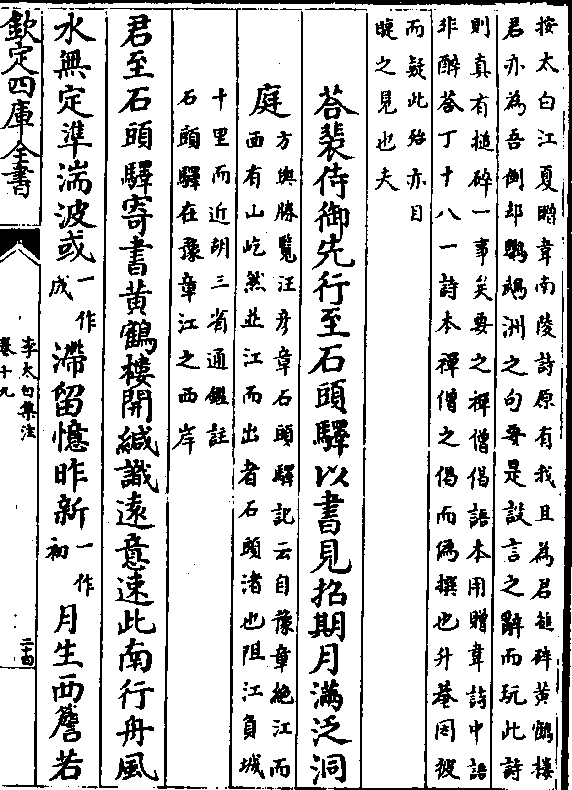 按太白江夏贈韋南陵詩原有我且為君搥碎黃鶴樓
君亦為吾倒却鸚鵡洲之句要是設言之辭而玩此詩
則真有搥碎一事矣要之禪僧偈語本用贈韋詩中語
非醉荅丁十八一詩本禪僧之偈而偽撰也升菴因彼
而疑此殆亦目
睫之見也夫
荅裴侍御先行至石頭驛以書見招期月滿泛洞
庭
方輿勝覽汪彦章石頭驛記云自豫章絶江而
西有山屹然並江而出者石頭渚也阻江負城
十里而近胡三省通鑑註
石頭驛在豫章江之西岸
君至石頭驛寄書黃鶴樓開緘識遠意速此南行舟風
水無定準湍波或一作成滯留憶昨新一作初月生西簷若
欽定四庫全書
李太白集注
卷十九
二十四